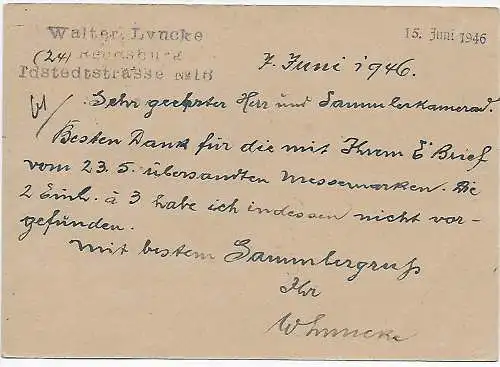 Walter Lyncke
15. Juni 1946
(24) Rendsburg
Idstedtstrasse № 16
7. Juni 1946.
Sehr geehrter Herr und Sammlerkamerad.
Besten Dank für die mit Ihrem E' Brief
vom 23. 5. übersandten Messemarken. Die
2 Einh. à 3 habe ich indessen nicht vor-
gefunden.
Mit bestem Sammlergruß
Ihr
W Lyncke